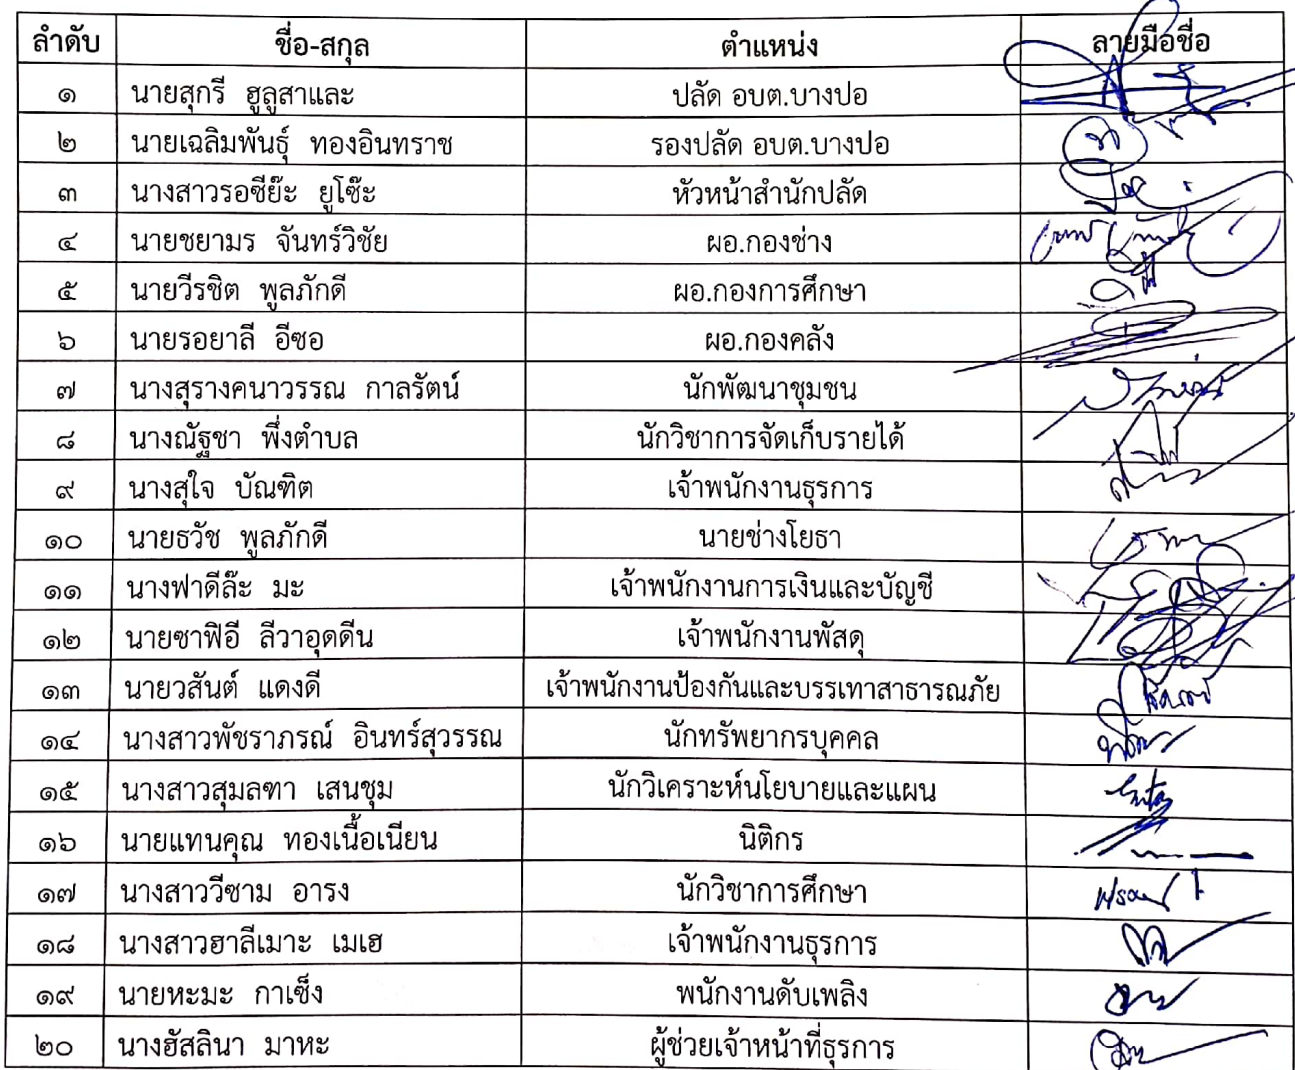 ลำดับ ชื่อ-สกุล ตำแหน่ง ลายมือชื่อ
๑ นายสุกรี ฮูลูสาและ ปลัด อบต.บางปอ
๒ นายเฉลิมพันธุ์ ทองอินทราช รองปลัด อบต.บางปอ
๓ นางสาวรอซีย๊ะ ยูโซ๊ะ หัวหน้าสำนักปลัด
๔ นายชยามร จันทร์วิชัย ผอ.กองช่าง
๕ นายวีรชิต พูลภักดี ผอ.กองการศึกษา
๖ นายรอยาลี อีซอ ผอ.กองคลัง
๗ นางสุรางคนาวรรณ กาลรัตน์ นักพัฒนาชุมชน
๘ นางณัฐชา พึ่งตำบล นักวิชาการจัดเก็บรายได้
๙ นางสุใจ บัณฑิต เจ้าพนักงานธุรการ
๑๐ นายธวัช พูลภักดี นายช่างโยธา
๑๑ นางฟาดีล๊ะ มะ เจ้าพนักงานการเงินและบัญชี
๑๒ นายซาฟิอี ลีวาอุดดีน เจ้าพนักงานพัสดุ
๑๓ นายวสันต์ แดงดี เจ้าพนักงานป้องกันและบรรเทาสาธารณภัย
๑๔ นางสาวพัชราภรณ์ อินทร์สุวรรณ นักทรัพยากรบุคคล
๑๕ นางสาวสุมลฑา เสนชุม นักวิเคราะห์นโยบายและแผน
๑๖ นายแทนคุณ ทองเนื้อเนียน นิติกร
๑๗ นางสาววีซาม อารง นักวิชาการศึกษา
๑๘ นางสาวฮาลีเมาะ เมเฮ เจ้าพนักงานธุรการ
๑๙ นายหะมะ กาเซ็ง พนักงานดับเพลิง
๒๐ นางฮัสลินา มาหะ ผู้ช่วยเจ้าหน้าที่ธุรการ